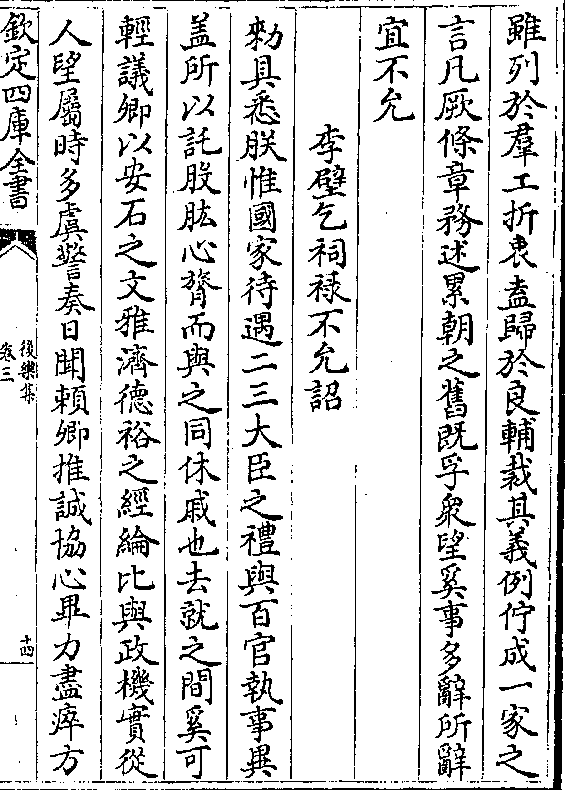 雖列於羣工折衷盍歸於良輔裁其義例佇成一家之
言凡厥條章務述累朝之舊既孚衆望奚事多辭所辭
宜不允
李壁乞祠禄不允詔
勑具悉朕惟國家待遇二三大臣之禮與百官執事異
盖所以託股肱心膂而與之同休戚也去就之間奚可
輕議卿以安石之文雅濟德裕之經綸比與政機實從
人望屬時多虞警奏日聞頼卿推誠協心畢力盡瘁方
欽定四庫全書
後樂集
卷三
十四